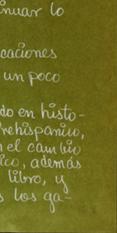 inuar lo
caciones
un poco
do en histo-
rehispanico,
n el cambio
lco, además
libro, y
s los ga-